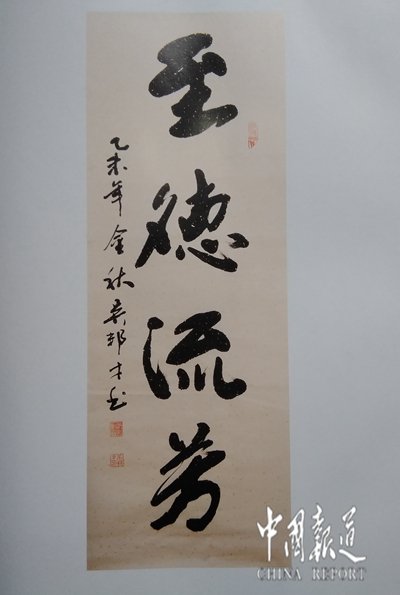 至德流芳
乙未年金秋吴邦才书
中国报道
CHINA REPORT